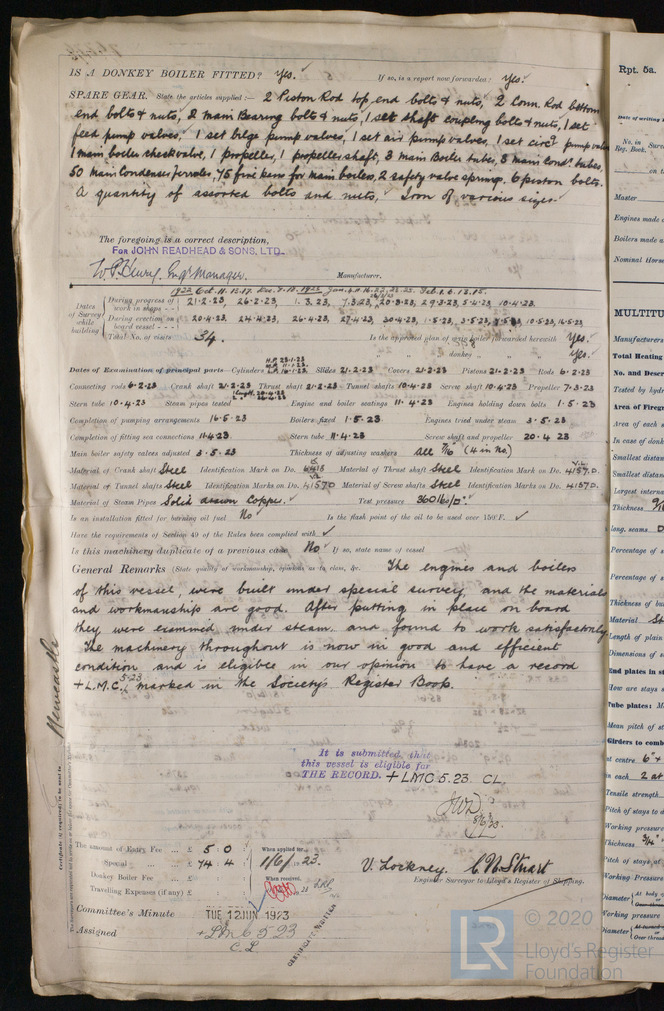 IS A DONKEY BOILER FITTED? Yes. If so, is a report now forwarded? Yes.
SPARE GEAR. State the articles supplied:— 2 Piston Rod top end bolts & nuts, 2 Conn. Rod bottom
end bolts & nuts, 2 main Bearing bolts & nuts, 1 set shaft coupling bolts & nuts, 1 set
feed pump valves. 1 set bilge pump valves, 1 set air pump valves, 1 set circg pump valves
1 main boiler check valve, 1 propeller, 1 propeller shaft, 3 main Boiler tubes, 3 main cond. tubes,
50 main condenser ferrules, 75 fire bars for main boilers, 2 safety valve springs. 6 piston bolts.
A quantity of assorted bolts and nuts. Iron of various sizes.
The foregoing is a correct description,
FOR JOHN READHEAD & SONS, LTD.
Engr Manager. Manufacturer.
1922 Oct. 11. 12. 17. Dec. 7. 1922 Jan. Feb. 1. 6. 12. 15.
Dates of Survey while building
During progress of work in shops - - 21.2.23, 26.2.23, 1.3.23, 7.3.23, 20.3.23, 29.3.23, 5.4.23, 10.4.23.
During erection on board vessel - - - 20.4.23, 24.4.23, 26.4.23, 27.4.23, 30.4.23, 1.5.23, 3.5.23, 10.5.23, 16.5.23
Total No. of visits 34. Is the approved plan of main boiler forwarded herewith Yes.
" " " donkey " " " Yes.
Dates of Examination of principal parts—Cylinders H.P. 23.1.23 M.P. 11.1.23 L.P. 16.1.23 Slides 21.2.23 Covers 21.2.23 Pistons 21.2.23 Rods 6.2.23
Connecting rods 6.2.23 Crank shaft 21.2.23 Thrust shaft 21.2.23 Tunnel shafts 10.4.23 Screw shaft 10.4.23 Propeller 7.3.23
Stern tube 10.4.23 Steam pipes tested 20.4.23 26.4.23 Engine and boiler seatings 11.4.23 Engines holding down bolts 1.5.23
Completion of pumping arrangements 16.5.23 Boilers fixed 1.5.23 Engines tried under steam 3.5.23
Completion of fitting sea connections 11.4.23 Stern tube 11.4.23 Screw shaft and propeller 20.4.23
Main boiler safety valves adjusted 3.5.23 Thickness of adjusting washers All 7/16 (4 in No)
Material of Crank shaft Steel Identification Mark on Do. Material of Thrust shaft Steel Identification Mark on Do. 4157D.
Material of Tunnel shafts Steel Identification Marks on Do. 4157D Material of Screw shafts Steel Identification Marks on Do. 4157D.
Material of Steam Pipes Solid drawn Copper. Test pressure 360 lbs/□".
Is an installation fitted for burning oil fuel No Is the flash point of the oil to be used over 150°F. ✓
Have the requirements of Section 49 of the Rules been complied with ✓
Is this machinery duplicate of a previous case No. If so, state name of vessel
General Remarks (State quality of workmanship, opinions as to class, &c. The engines and boilers
of this vessel, were built under special survey, and the materials
and workmanship are good. After putting in place on board
they were examined under steam and found to work satisfactorily
The machinery throughout is now in good and efficient
condition and is eligible in our opinion to have a record
+ L.M.C. 5.23 marked in the Society's Register Book.
Newcastle
It is submitted that
this vessel is eligible for
THE RECORD. + LMC 5.23 CL.
The amount of Entry Fee ... £ 5 : 0
Special ... £ 74 : 4
Donkey Boiler Fee ... £
Travelling Expenses (if any) £
When applied for, 1/6/1923.
When received,
V. Lockney. C. N. Stuart
Engineer Surveyor to Lloyd's Register of Shipping.
Committee's Minute TUE 12 JUN 1923
Assigned + LMC 5 23
C. L.
CERTIFICATE WRITTEN
LR © 2020
Lloyd's Register
Foundation
Rpt. 5a.
No. in Reg. Book.
Master
Engines made
Boilers made
Nominal Horse
MULTITU
Manufacturers
Total Heating
No. and Descr
Tested by hydr
Area of Firegr
Area of each s
In case of donk
Smallest distan
Smallest distan
Largest intern
Thickness
long. seams
Percentage of s
Percentage of s
Thickness of bu
Material
Length of plain
Dimensions of s
End plates in st
How are stays s
Tube plates: M
Mean pitch of st
Girders to comb
at centre
in each 2 at
Tensile strength
Pitch of stays to
Working pressure
Thickness 3/4"
Pitch of stays at
Working Pressure
Diameter
Working pressure
Diameter